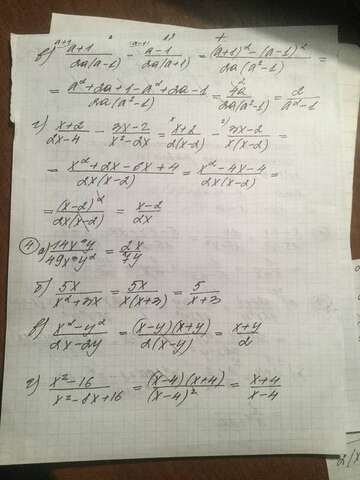 в) a+1/2a(a-1) - a-1/2a(a+1) = (a+1)² - (a-1)²/2a(a²-1) =
= a²+2a+1-a²+2a-1/2a(a²-1) = 4a/2a(a²-1) = 2/a²-1
г) x+2/2x-4 - 3x-2/x²-2x = x+2/2(x-2) - 3x-2/x(x-2) =
= x²+2x-6x+4/2x(x-2) = x²-4x-4/2x(x-2) =
= (x-2)²/2x(x-2) = x-2/2x
④ а) 14x³y/49x²y² = 2x/7y
б) 5x/x²+3x = 5x/x(x+3) = 5/x+3
в) x²-y²/2x-2y = (x-y)(x+y)/2(x-y) = x+y/2
г) x²-16/x²-8x+16 = (x-4)(x+4)/(x-4)² = x+4/x-4